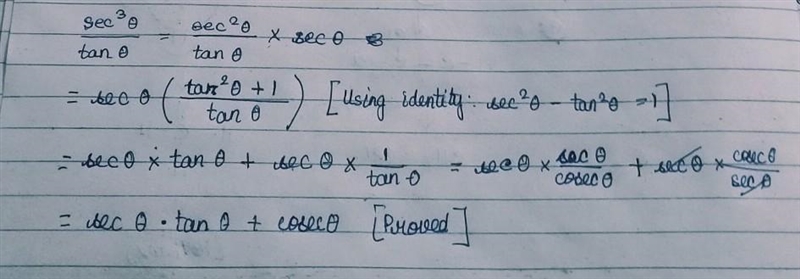 sec³θ / tan θ = sec²θ / tan θ × sec θ
= sec θ ( tan²θ + 1 / tan θ ) [Using identity: sec²θ - tan²θ = 1]
= sec θ × tan θ + sec θ × 1 / tan θ = sec θ × sec θ / cosec θ + sec θ × cosec θ / sec θ
= sec θ · tan θ + cosec θ [Proved]